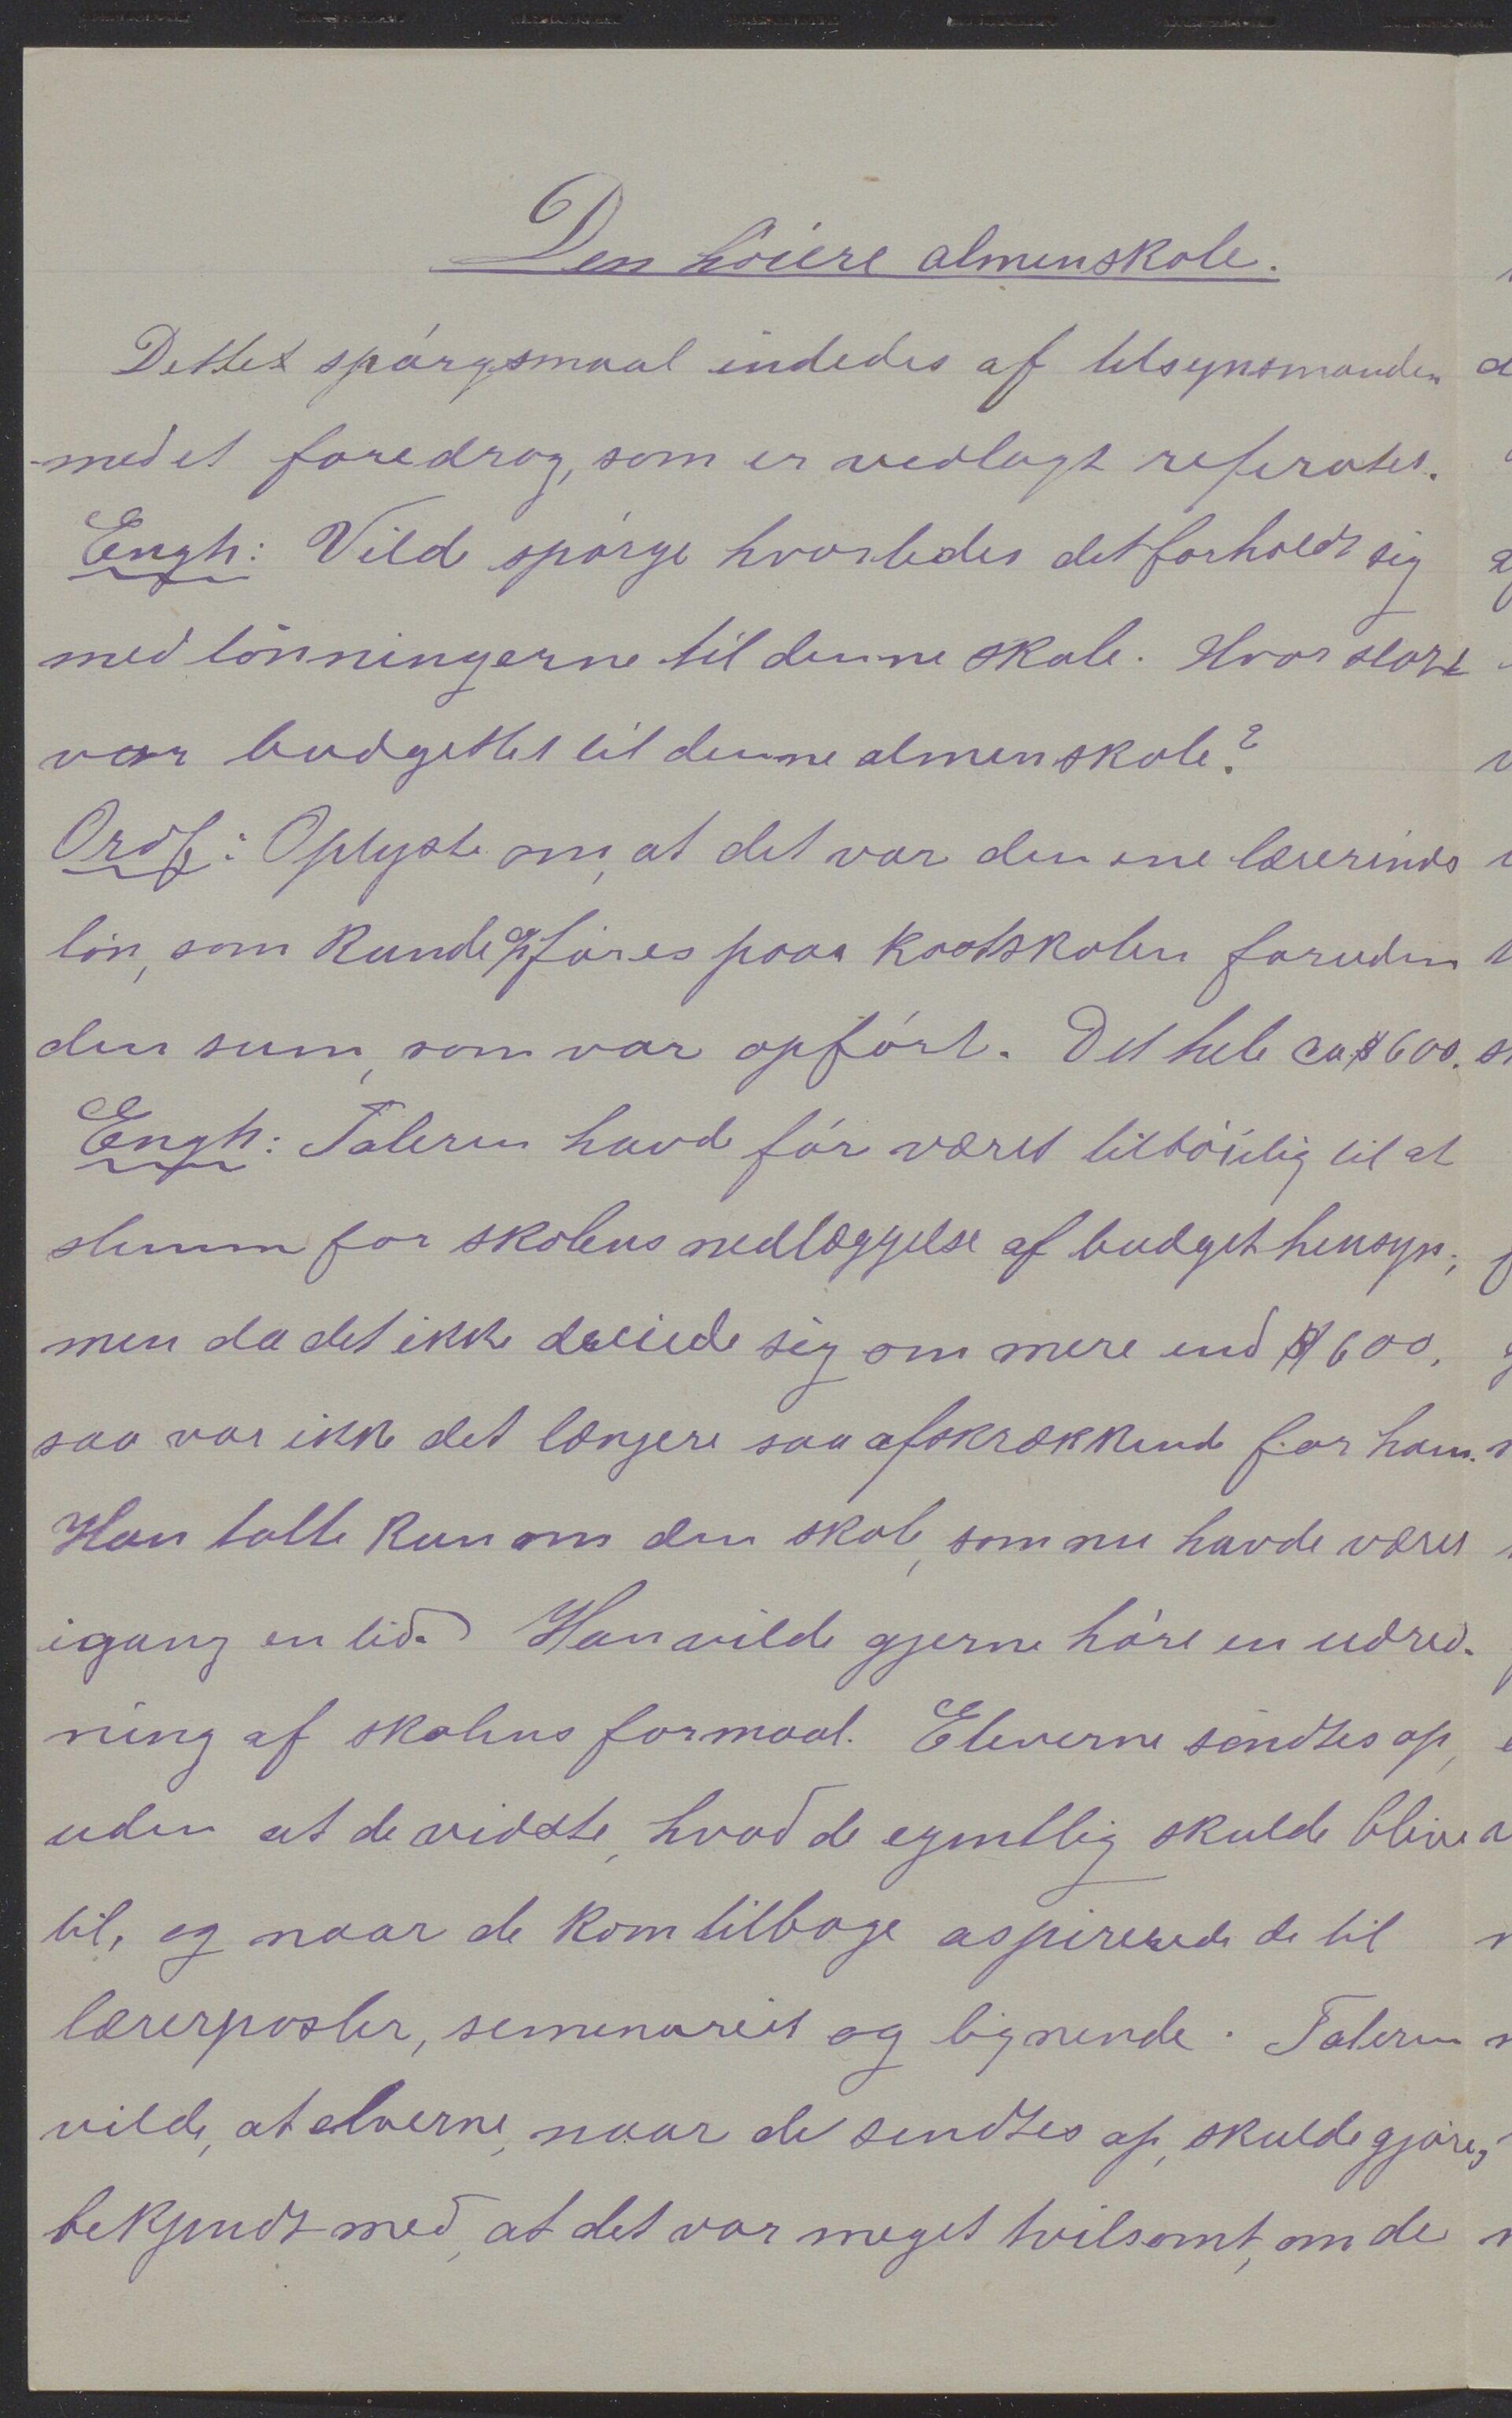 Den höiere almenskole.
Dettet spórgsmaal indledes af tilsynsmanden
med et foredrag, som er vedlagt referatet.
Engh: Vilde spórge hvorledes det forholdt sig
med lönningerne til denne skole. Hvor stort
var budgettet til denne almenskole?
Ordf: Oplyste om, at det var den ene lærerinds
lón, som kunde opfóres paa kostskolen foruden
den sum, som var opfórt. Det hele ca $ 600.
Engh: Taleren havde fór været tilbóielig til at
stemme for skolens nedlæggelse af budgethensyn;
men da det ikke dreiede sig om mere end $ 600,
saa var ikke det længere saa afskrækkende for ham.
Han talte kun om den skole, som nu havde været
igang en tid. Han vilde gjerne hóre en udred-
ning af skolens formaal. Eleverne sendtes op,
uden at de vidste, hvad de egentlig skulde blive
til, og naar de kom tilbage aspirerede de til
lærerposter, semenariet og lignende. Taleren
vilde, at elverne, naar de sendtes op, skulde gjóres
bekjendt med, at det var meget tvilsomt, om de